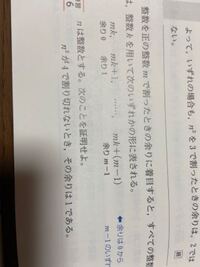 よって，いずれの場合も，n²を3で割ったときの余りは，2では
ない。
整数を正の整数mで割ったときの余りに着目すると，すべての整数
は，整数kを用いて次のいずれかの形に表される。
mk, mk+1, ……, mk+(m−1)
余り0 余り1 余りm−1
余りは0から
m−1のいず
6 nは整数とする。次のことを証明せよ。
n²が4で割り切れないとき，その余りは1である。